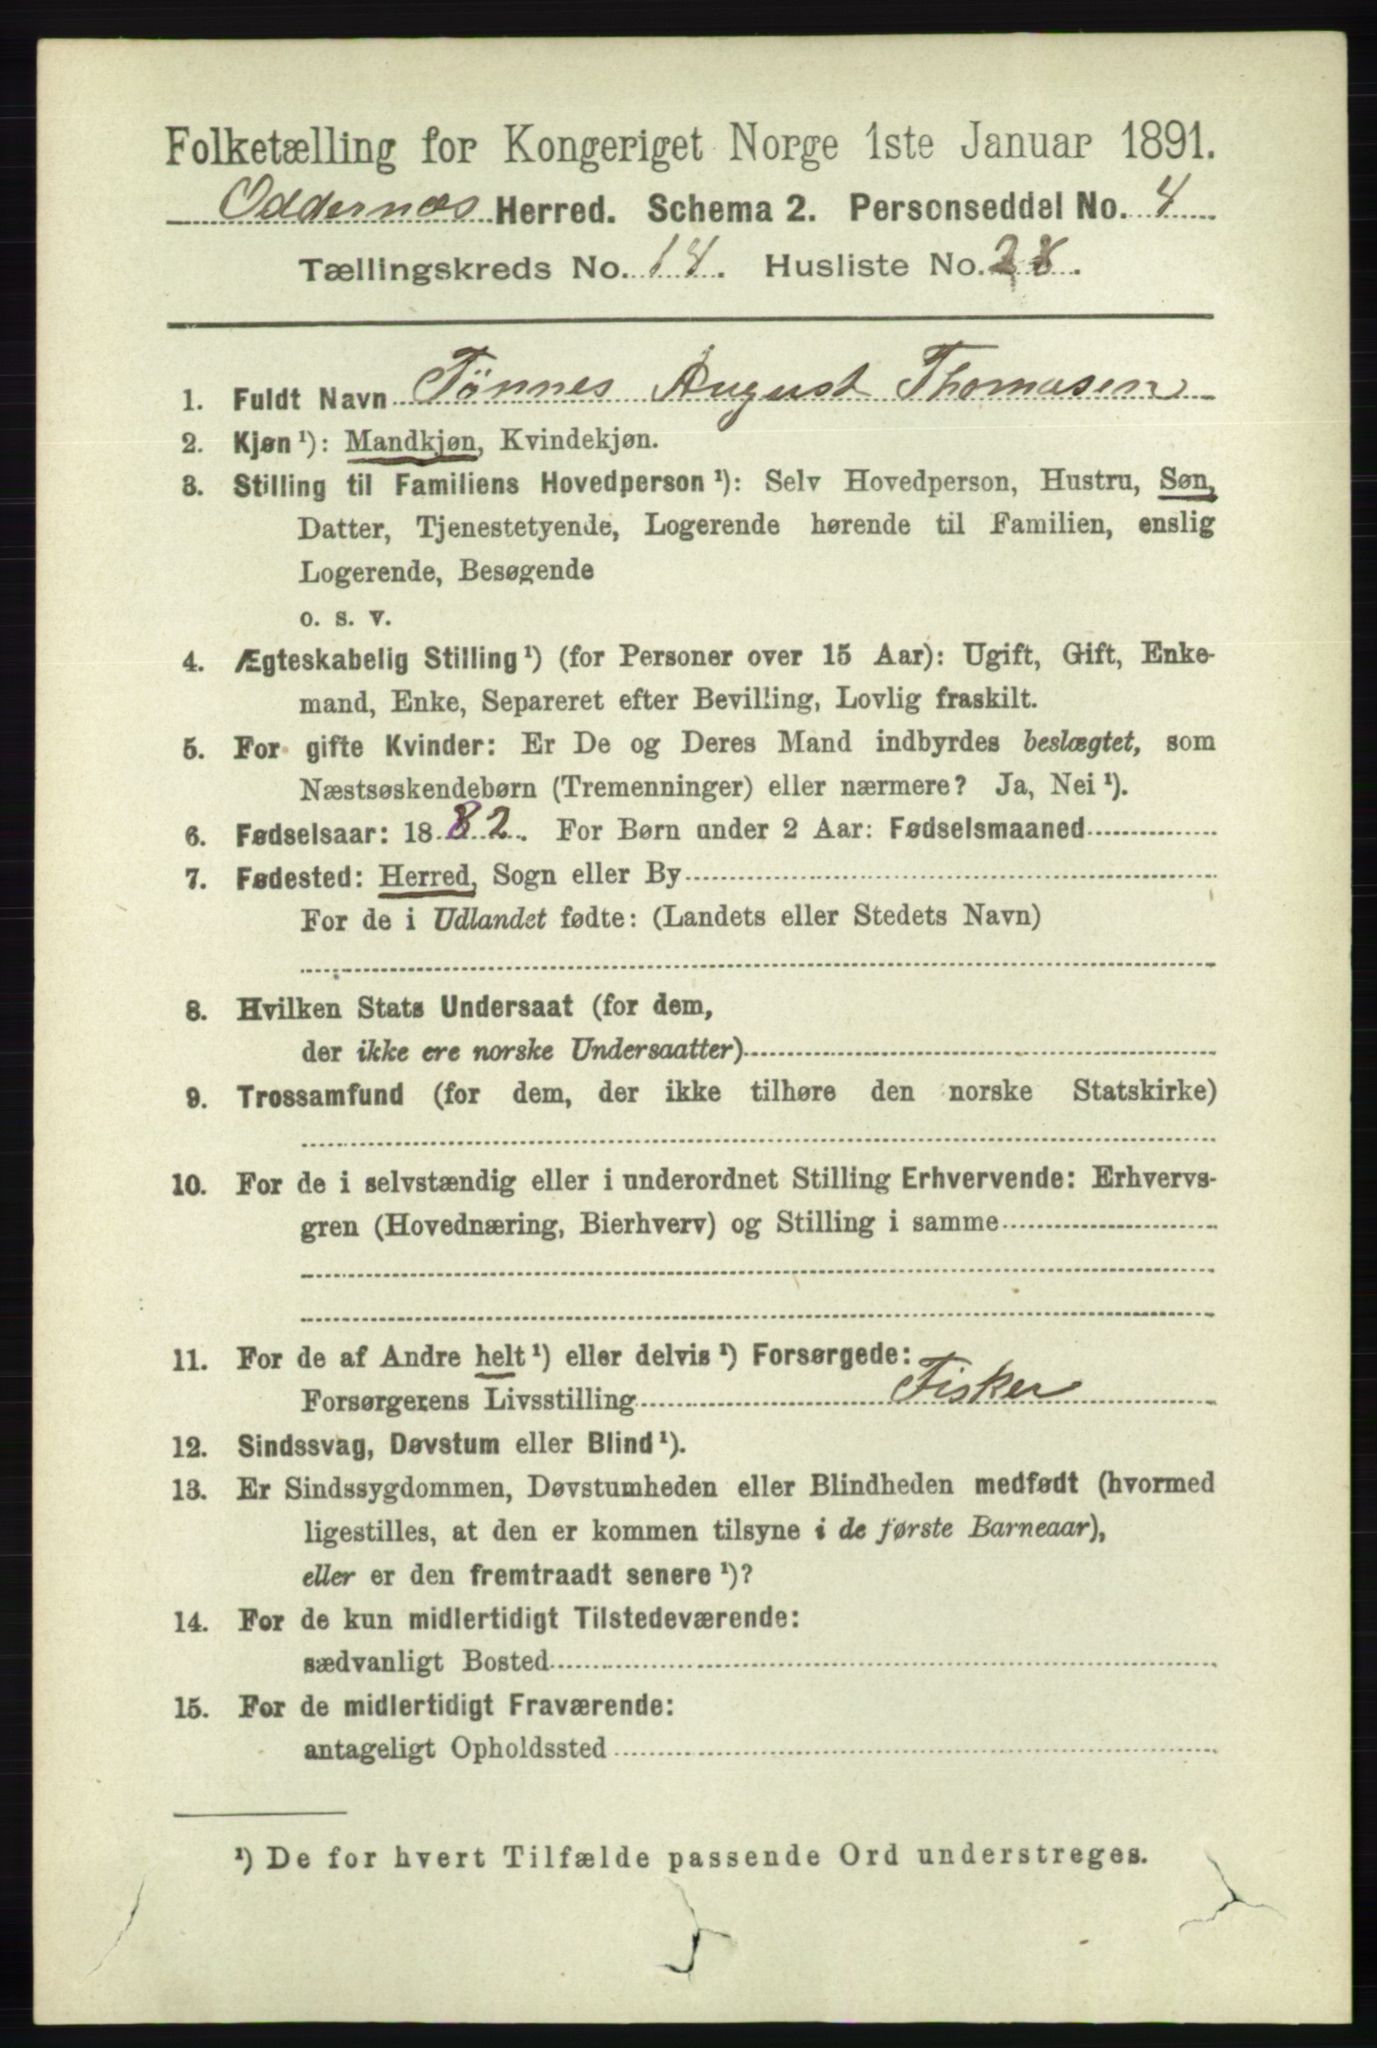 Folketælling for Kongeriget Norge 1ste Januar 1891.
Oddernæs Herred. Schema 2. Personseddel No. 4
Tællingskreds No. 14. Husliste No. 28.
1. Fuldt Navn Tönnes August Thomasen
2. Kjøn¹): Mandkjøn, Kvindekjøn.
3. Stilling til Familiens Hovedperson¹): Selv Hovedperson, Hustru, Søn,
Datter, Tjenestetyende, Logerende hørende til Familien, enslig
Logerende, Besøgende
o. s. v.
4. Ægteskabelig Stilling¹) (for Personer over 15 Aar): Ugift, Gift, Enke-
mand, Enke, Separeret efter Bevilling, Lovlig fraskilt.
5. For gifte Kvinder: Er De og Deres Mand indbyrdes beslægtet, som
Næstsøskendebørn (Tremenninger) eller nærmere? Ja, Nei¹).
6. Fødselsaar: 1882. For Børn under 2 Aar: Fødselsmaaned
7. Fødested: Herred, Sogn eller By
For de i Udlandet fødte: (Landets eller Stedets Navn)
8. Hvilken Stats Undersaat (for dem,
der ikke ere norske Undersaatter)
9. Trossamfund (for dem, der ikke tilhøre den norske Statskirke)
10. For de i selvstændig eller i underordnet Stilling Erhvervende: Erhvervs-
gren (Hovednæring, Bierhverv) og Stilling i samme
11. For de af Andre helt¹) eller delvis¹) Forsørgede:
Forsørgerens Livsstilling Fisker
12. Sindssvag, Døvstum eller Blind¹).
13. Er Sindssygdommen, Døvstumheden eller Blindheden medfødt (hvormed
ligestilles, at den er kommen tilsyne i de første Barneaar),
eller er den fremtraadt senere¹)?
14. For de kun midlertidigt Tilstedeværende:
sædvanligt Bosted
15. For de midlertidigt Fraværende:
antageligt Opholdssted
¹) De for hvert Tilfælde passende Ord understreges.